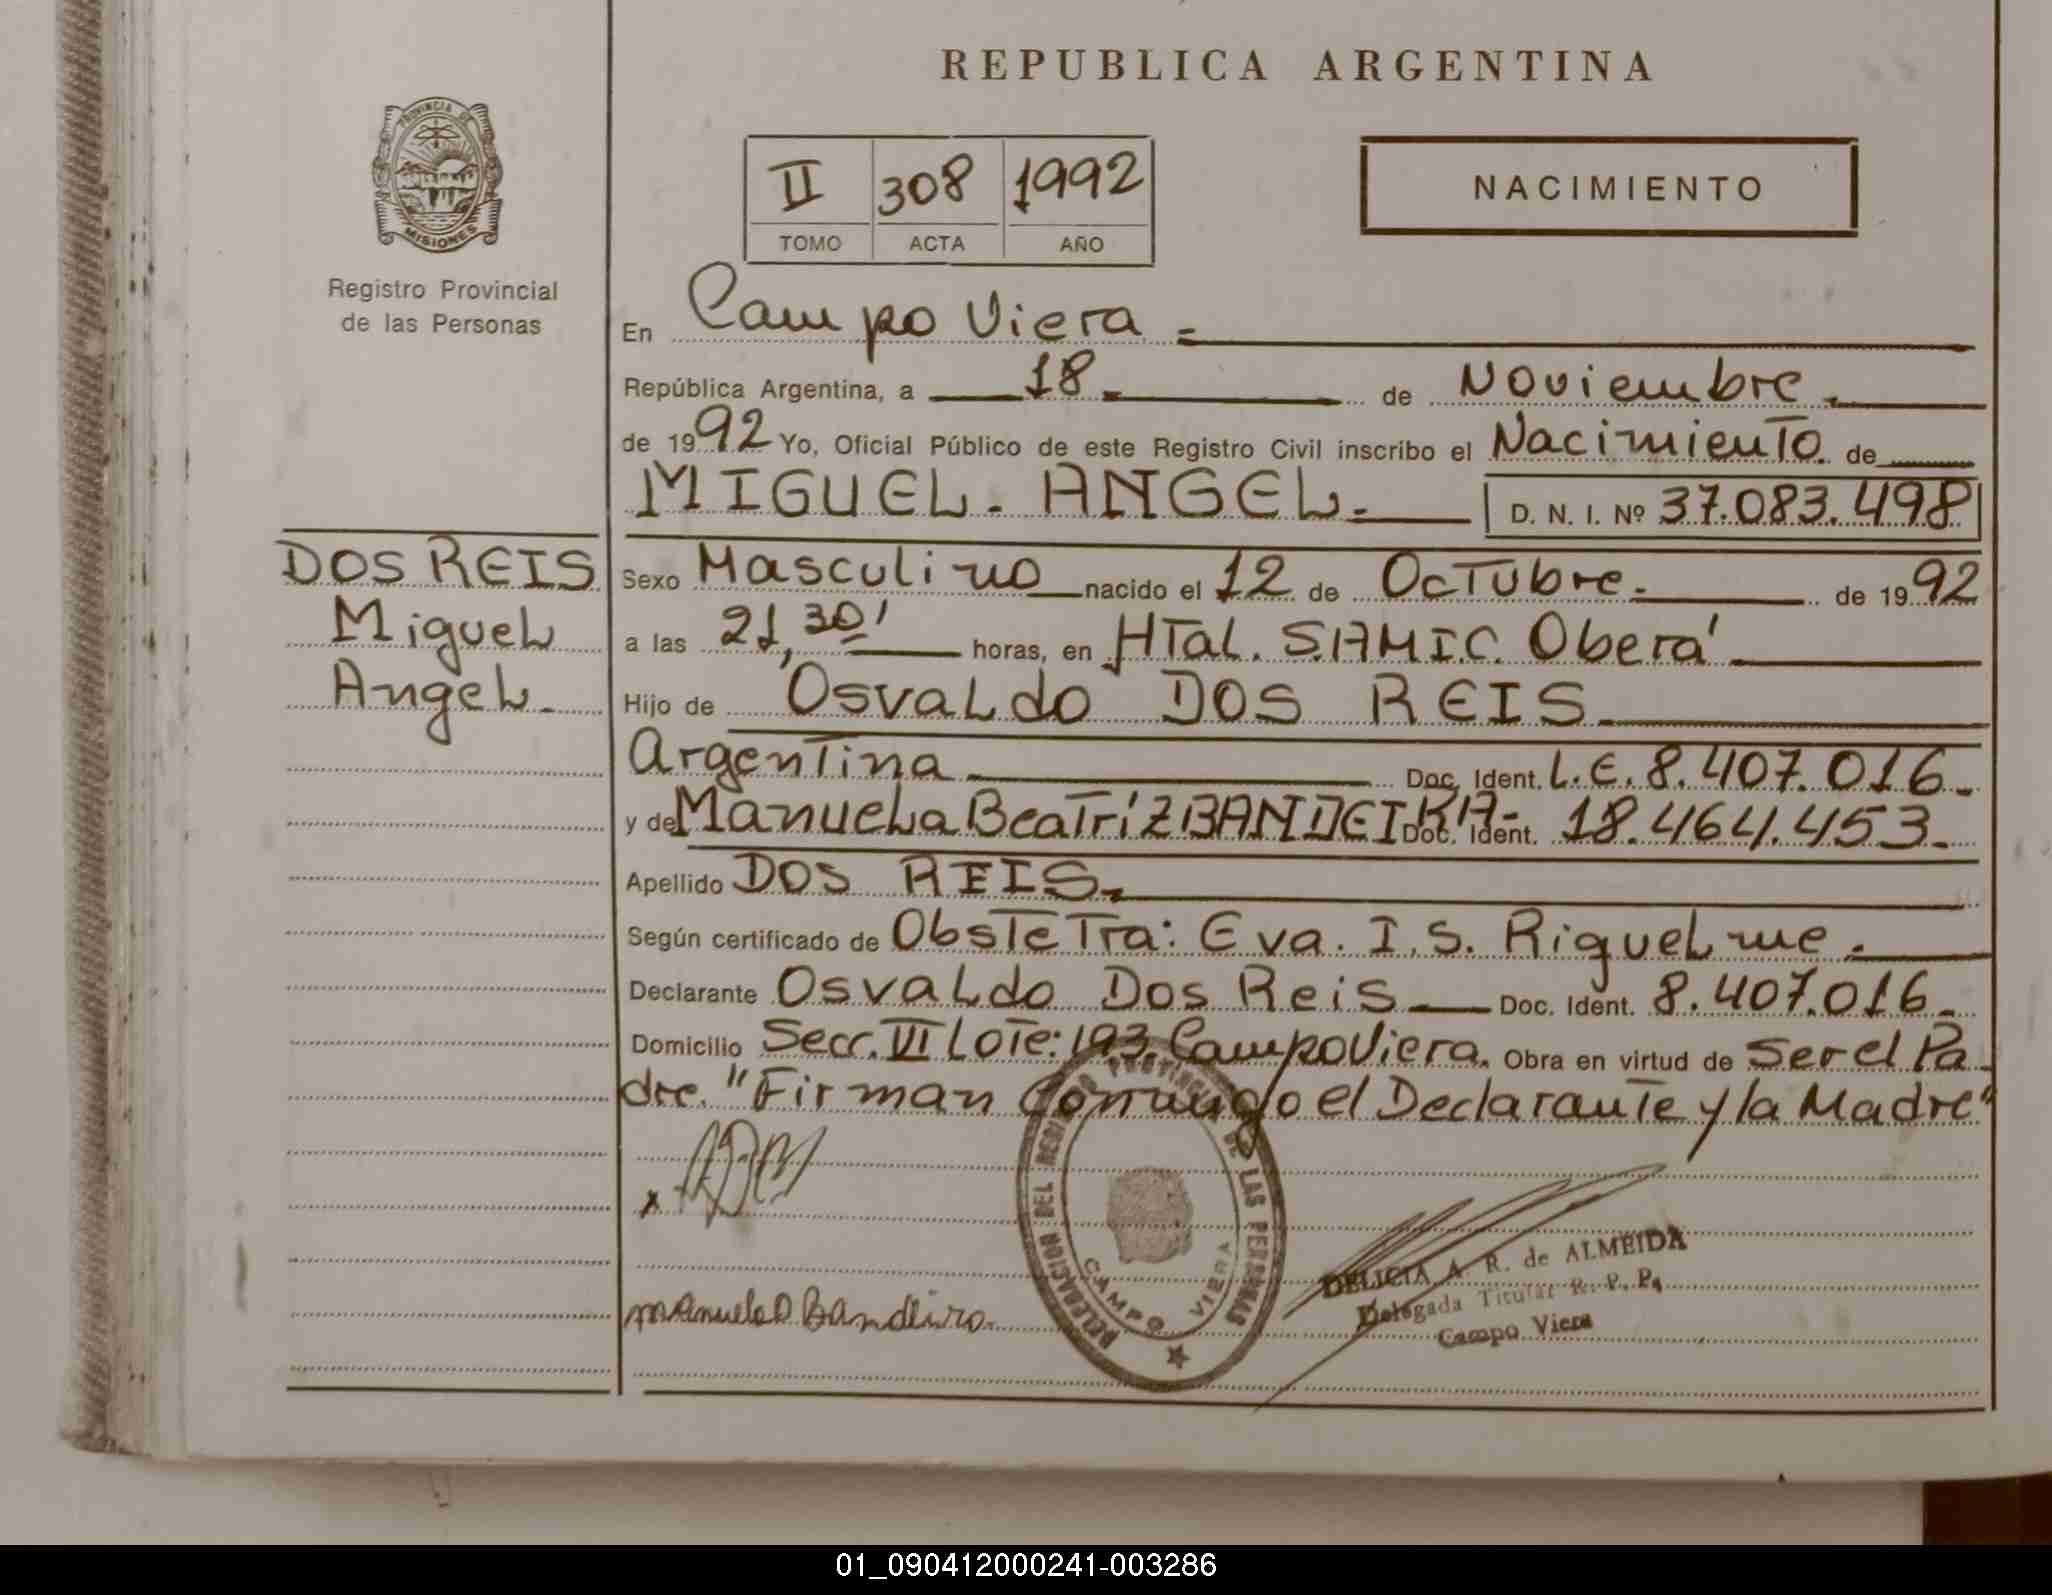 REPUBLICA ARGENTINA
PROVINCIA DE
MISIONES
Registro Provincial
de las Personas
II 308 1992
TOMO ACTA AÑO
NACIMIENTO
En Campo Viera.=
República Argentina, a 18. de Noviembre.
de 1992 Yo, Oficial Público de este Registro Civil inscribo el Nacimiento. de
MIGUEL. ANGEL. D. N. I. Nº 37.083.498
DOS REIS
Miguel
Angel.
Sexo Masculino nacido el 12 de Octubre. de 1992
a las 21,30' horas, en HTal. S.AMI.C. Oberá
Hijo de Osvaldo DOS REIS.
Argentina Doc. Ident. L.E. 8.407.016.
y de Manuela Beatríz BANDEIRA- Doc. Ident. 18.464.453.
Apellido DOS REIS.
Según certificado de Obstetra: Eva. I. S. Riquelme.
Declarante Osvaldo Dos Reis Doc. Ident. 8.407.016.
Domicilio Secc. VI Lote: 193. Campo Viera. Obra en virtud de Ser el Pa-
dre. "Firman Conmigo el Declarante y la Madre"
x
DELEGACION DEL REGISTRO PROVINCIAL DE LAS PERSONAS
CAMPO VIERA
DELICIA A. R. de ALMEIDA
Delegada Titular R. P. P.
Campo Viera
Manuela B Bandeira.
01_090412000241-003286